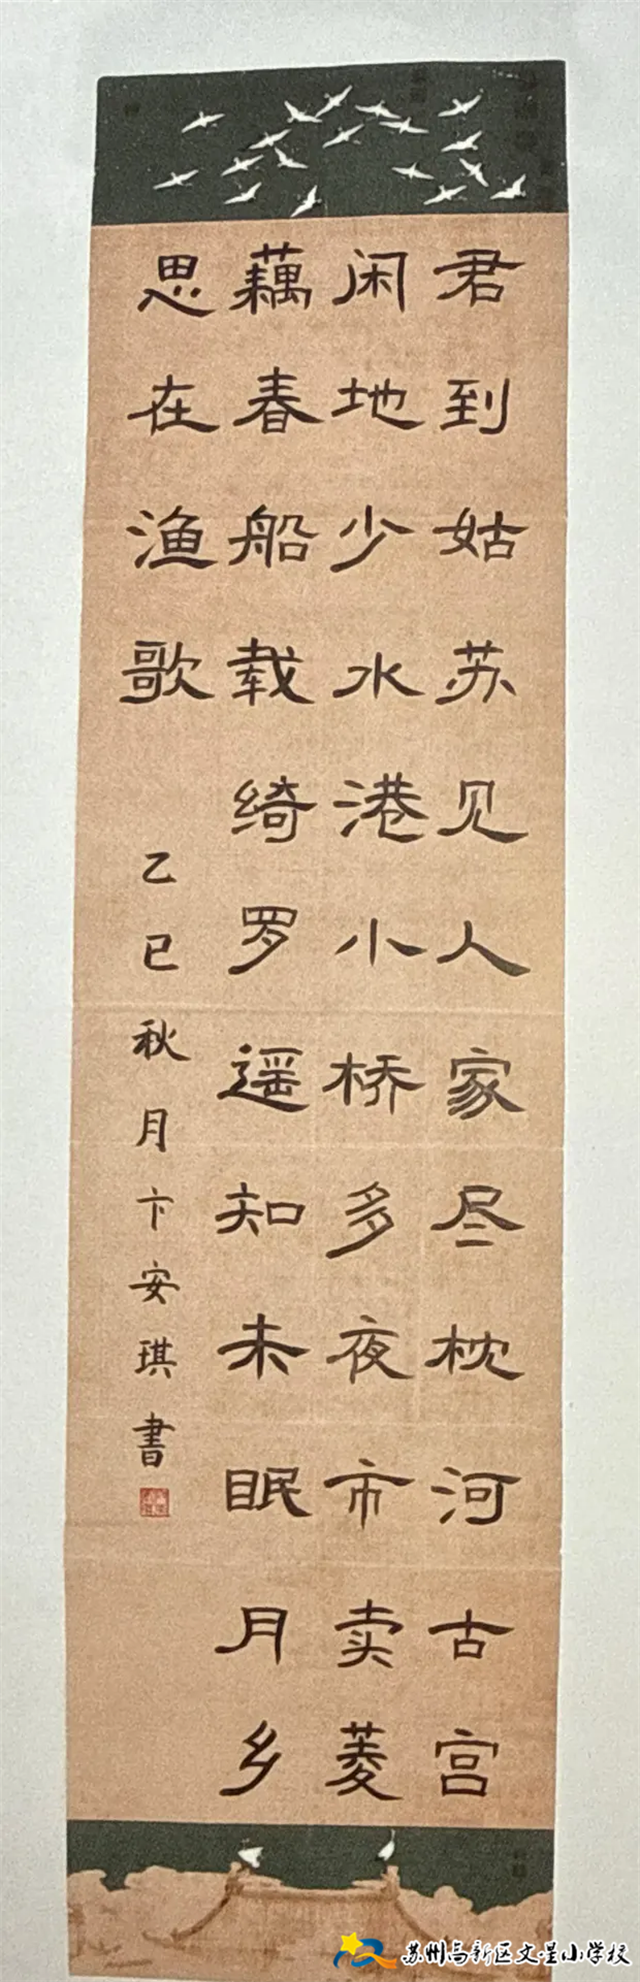 君到姑苏见人家尽枕河古宫
闲地少水港小桥多夜市卖菱
藕春船载绮罗遥知未眠月乡
思在渔歌
乙巳秋月卞安琪書
苏州高新区文星小学校